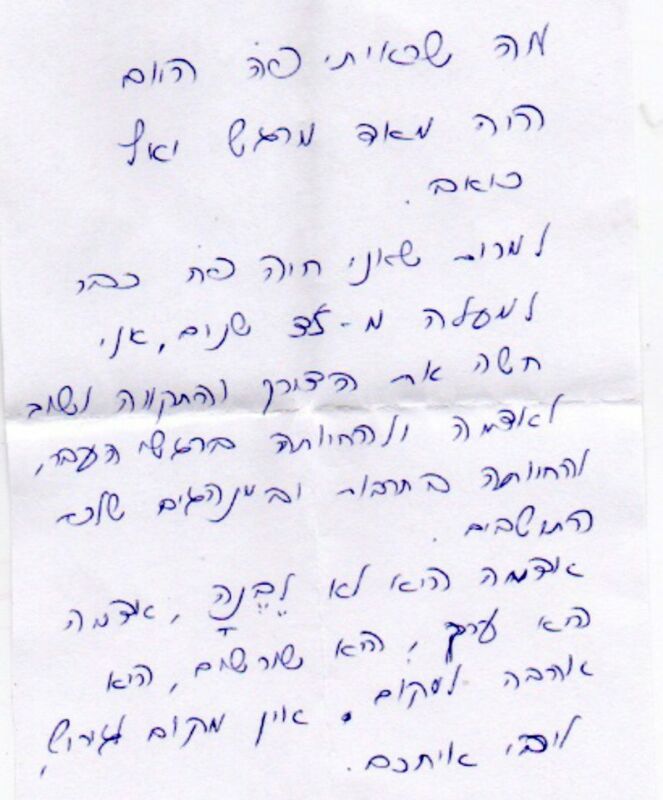 מה שראיתי פה היום
היה מאד מרגש ואף
כואב.
למרות שאני חיה פה כבר
למעלה מ-  שנים, אני
חשה את הצורך והתקווה לשוב
לאדמה ולהחיותה ברגשי העבר,
להחיותה בתרבות ובמנהגים של
התושבים.
אדמה היא לא לְבֵנָה, אדמה
היא ערך, היא שורשים, היא
אהבה למקום. אין מקום לגירוש,
ליבי איתכם.